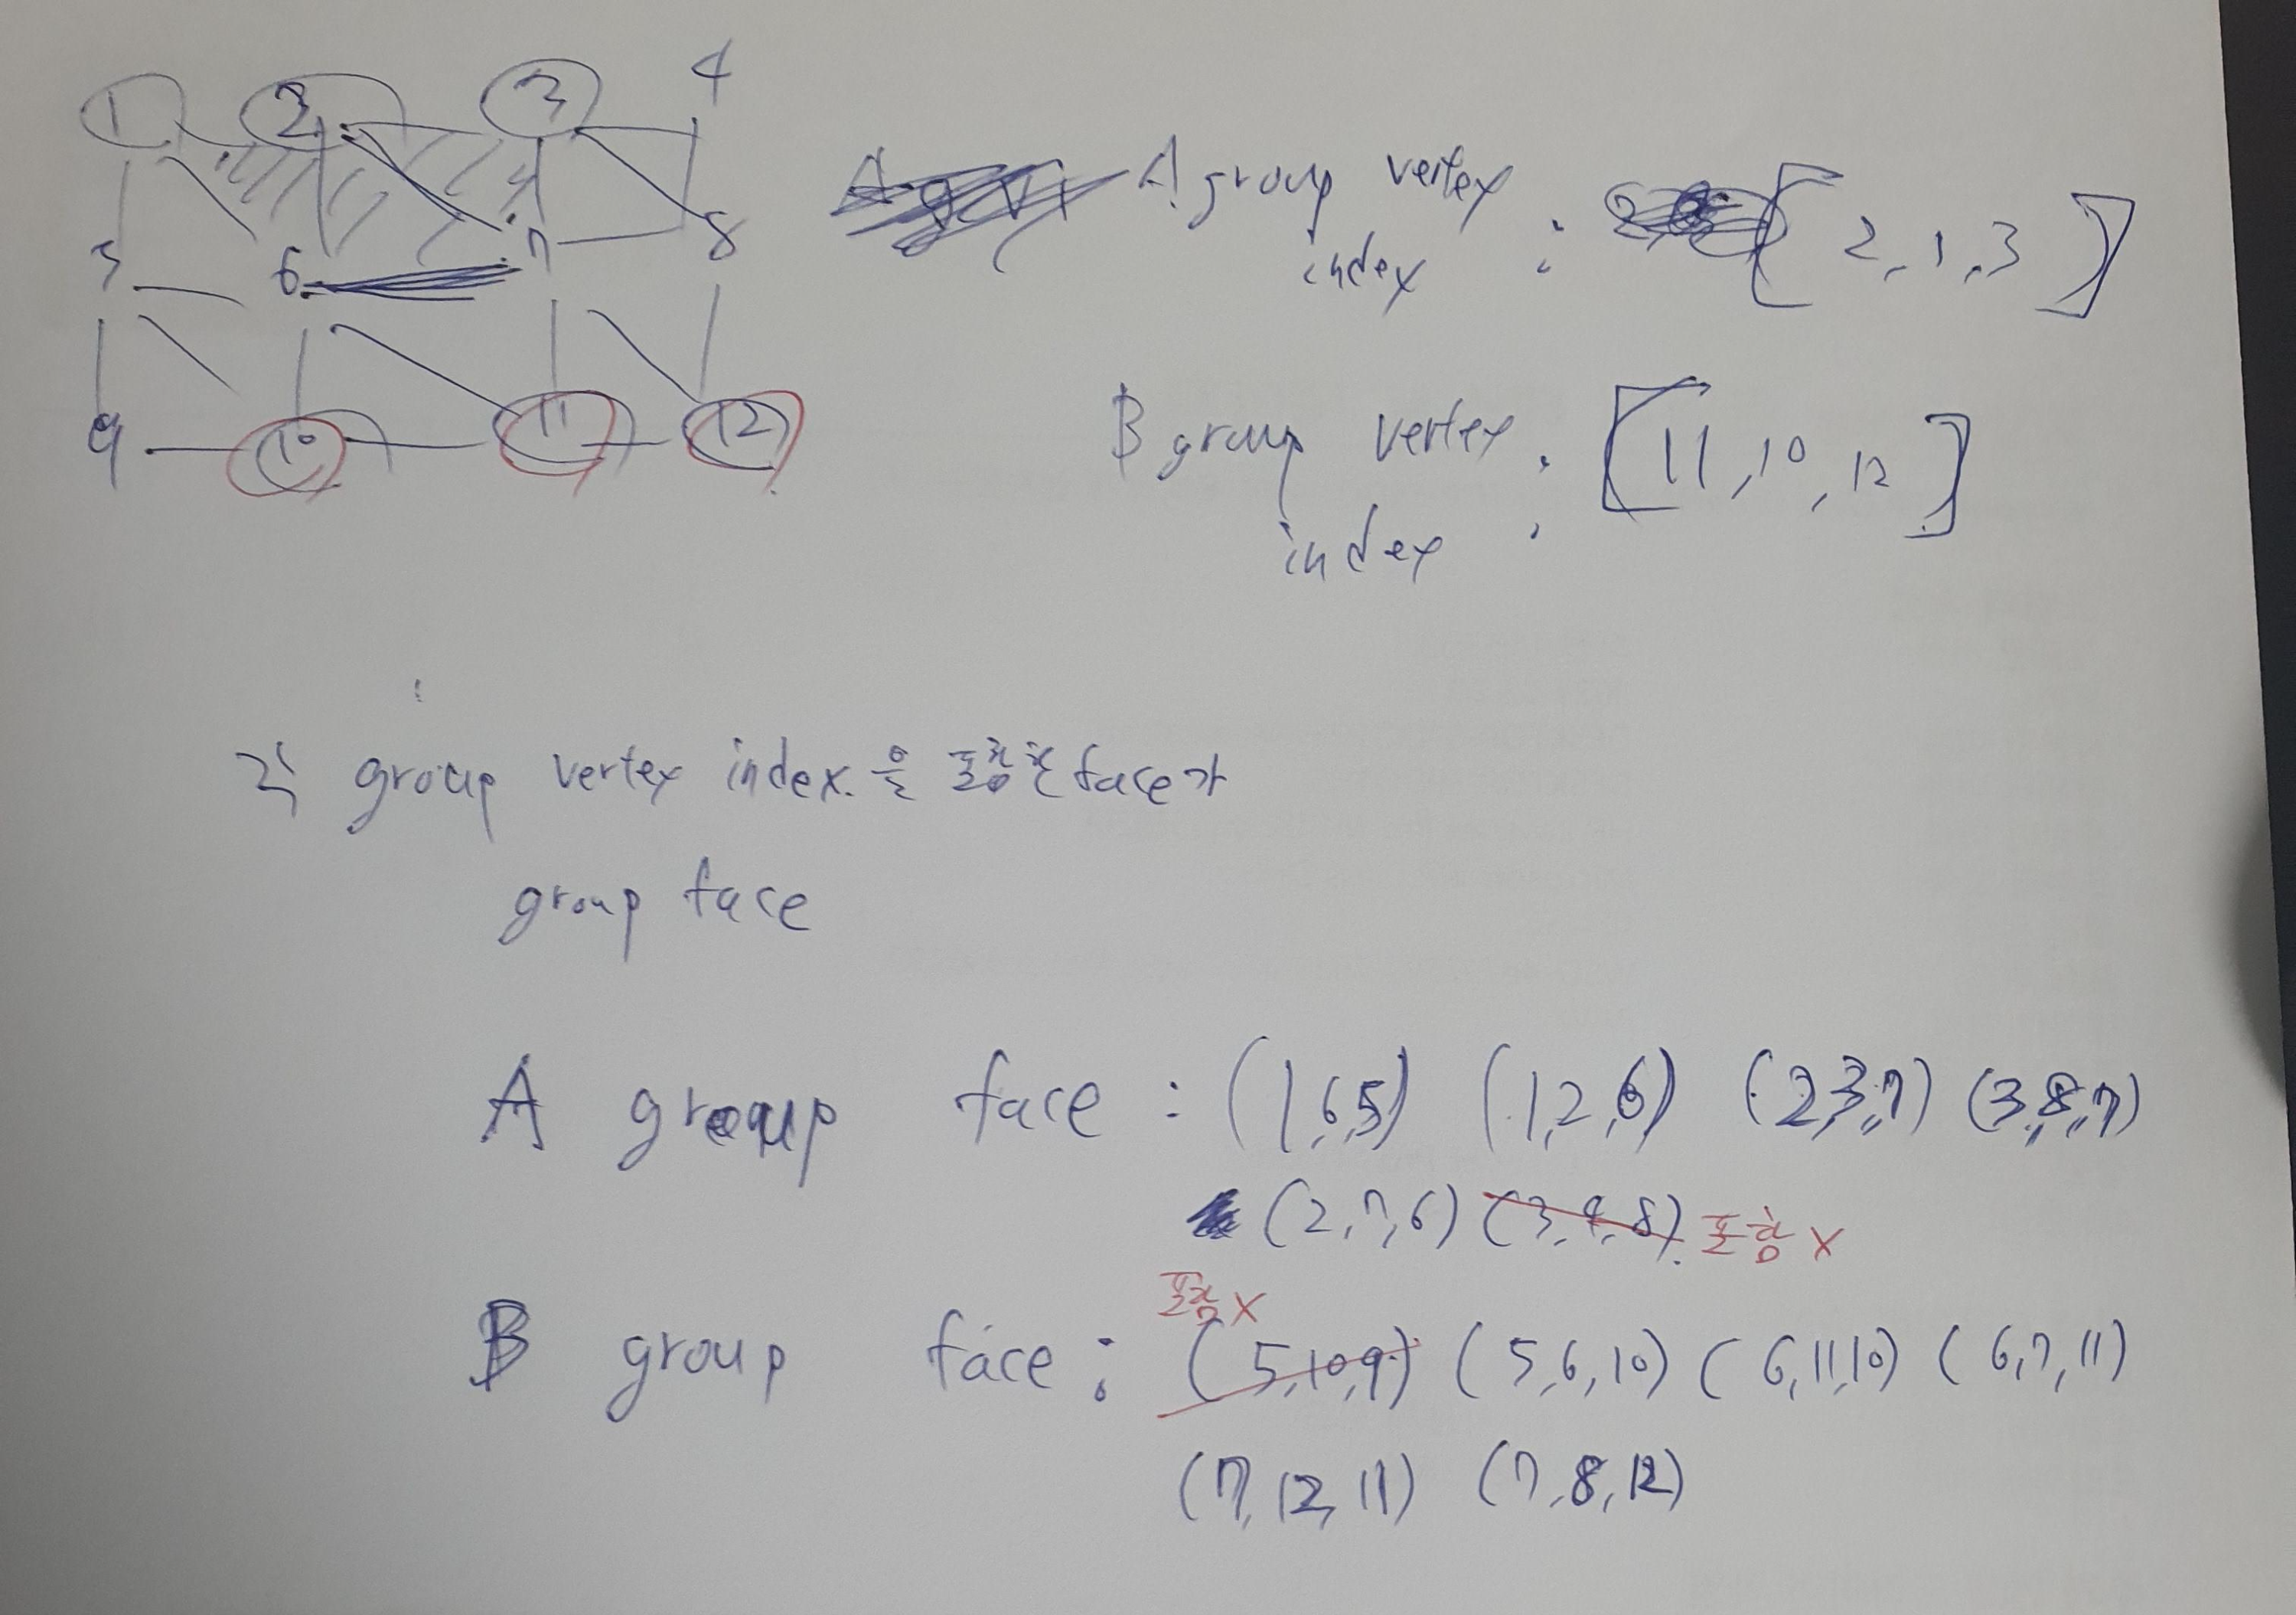 1 2 3 4
5 6 7 8
9 10 11 12
A group vertex index : [ 2, 1, 3 ]
B group vertex index : [ 11, 10, 12 ]
각 group vertex index 을 포함한 face가
group face
A group face : (1,6,5) (1,2,6) (2,3,7) (3,8,7)
(2,7,6) (3,4,8) 포함 X
포함 X
B group face : (5,10,9) (5,6,10) (6,11,10) (6,7,11)
(7,12,11) (7,8,12)